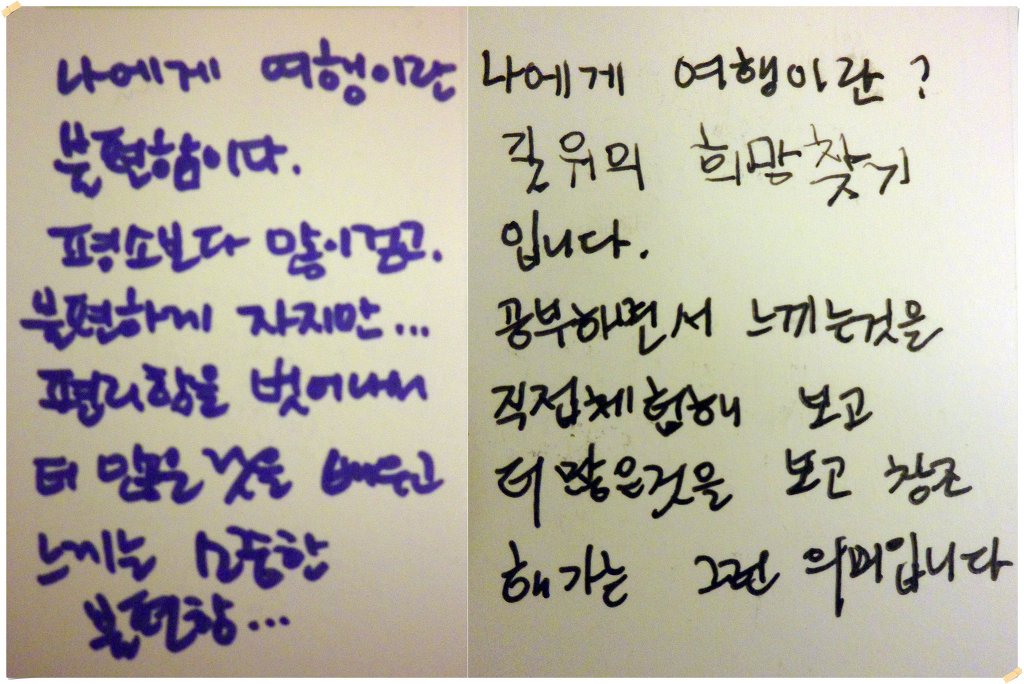 나에게 여행이란
불편함이다.
평소보다 많이걷고.
불편하게 자지만...
편리함을 벗어나서
더 많은 것을 배우고
느끼는 소중한
불편함...
나에게 여행이란?
길위의 희망찾기
입니다.
공부하면서 느끼는것을
직접체험해 보고
더 많은것을 보고 창조
해가는 그런 의미입니다